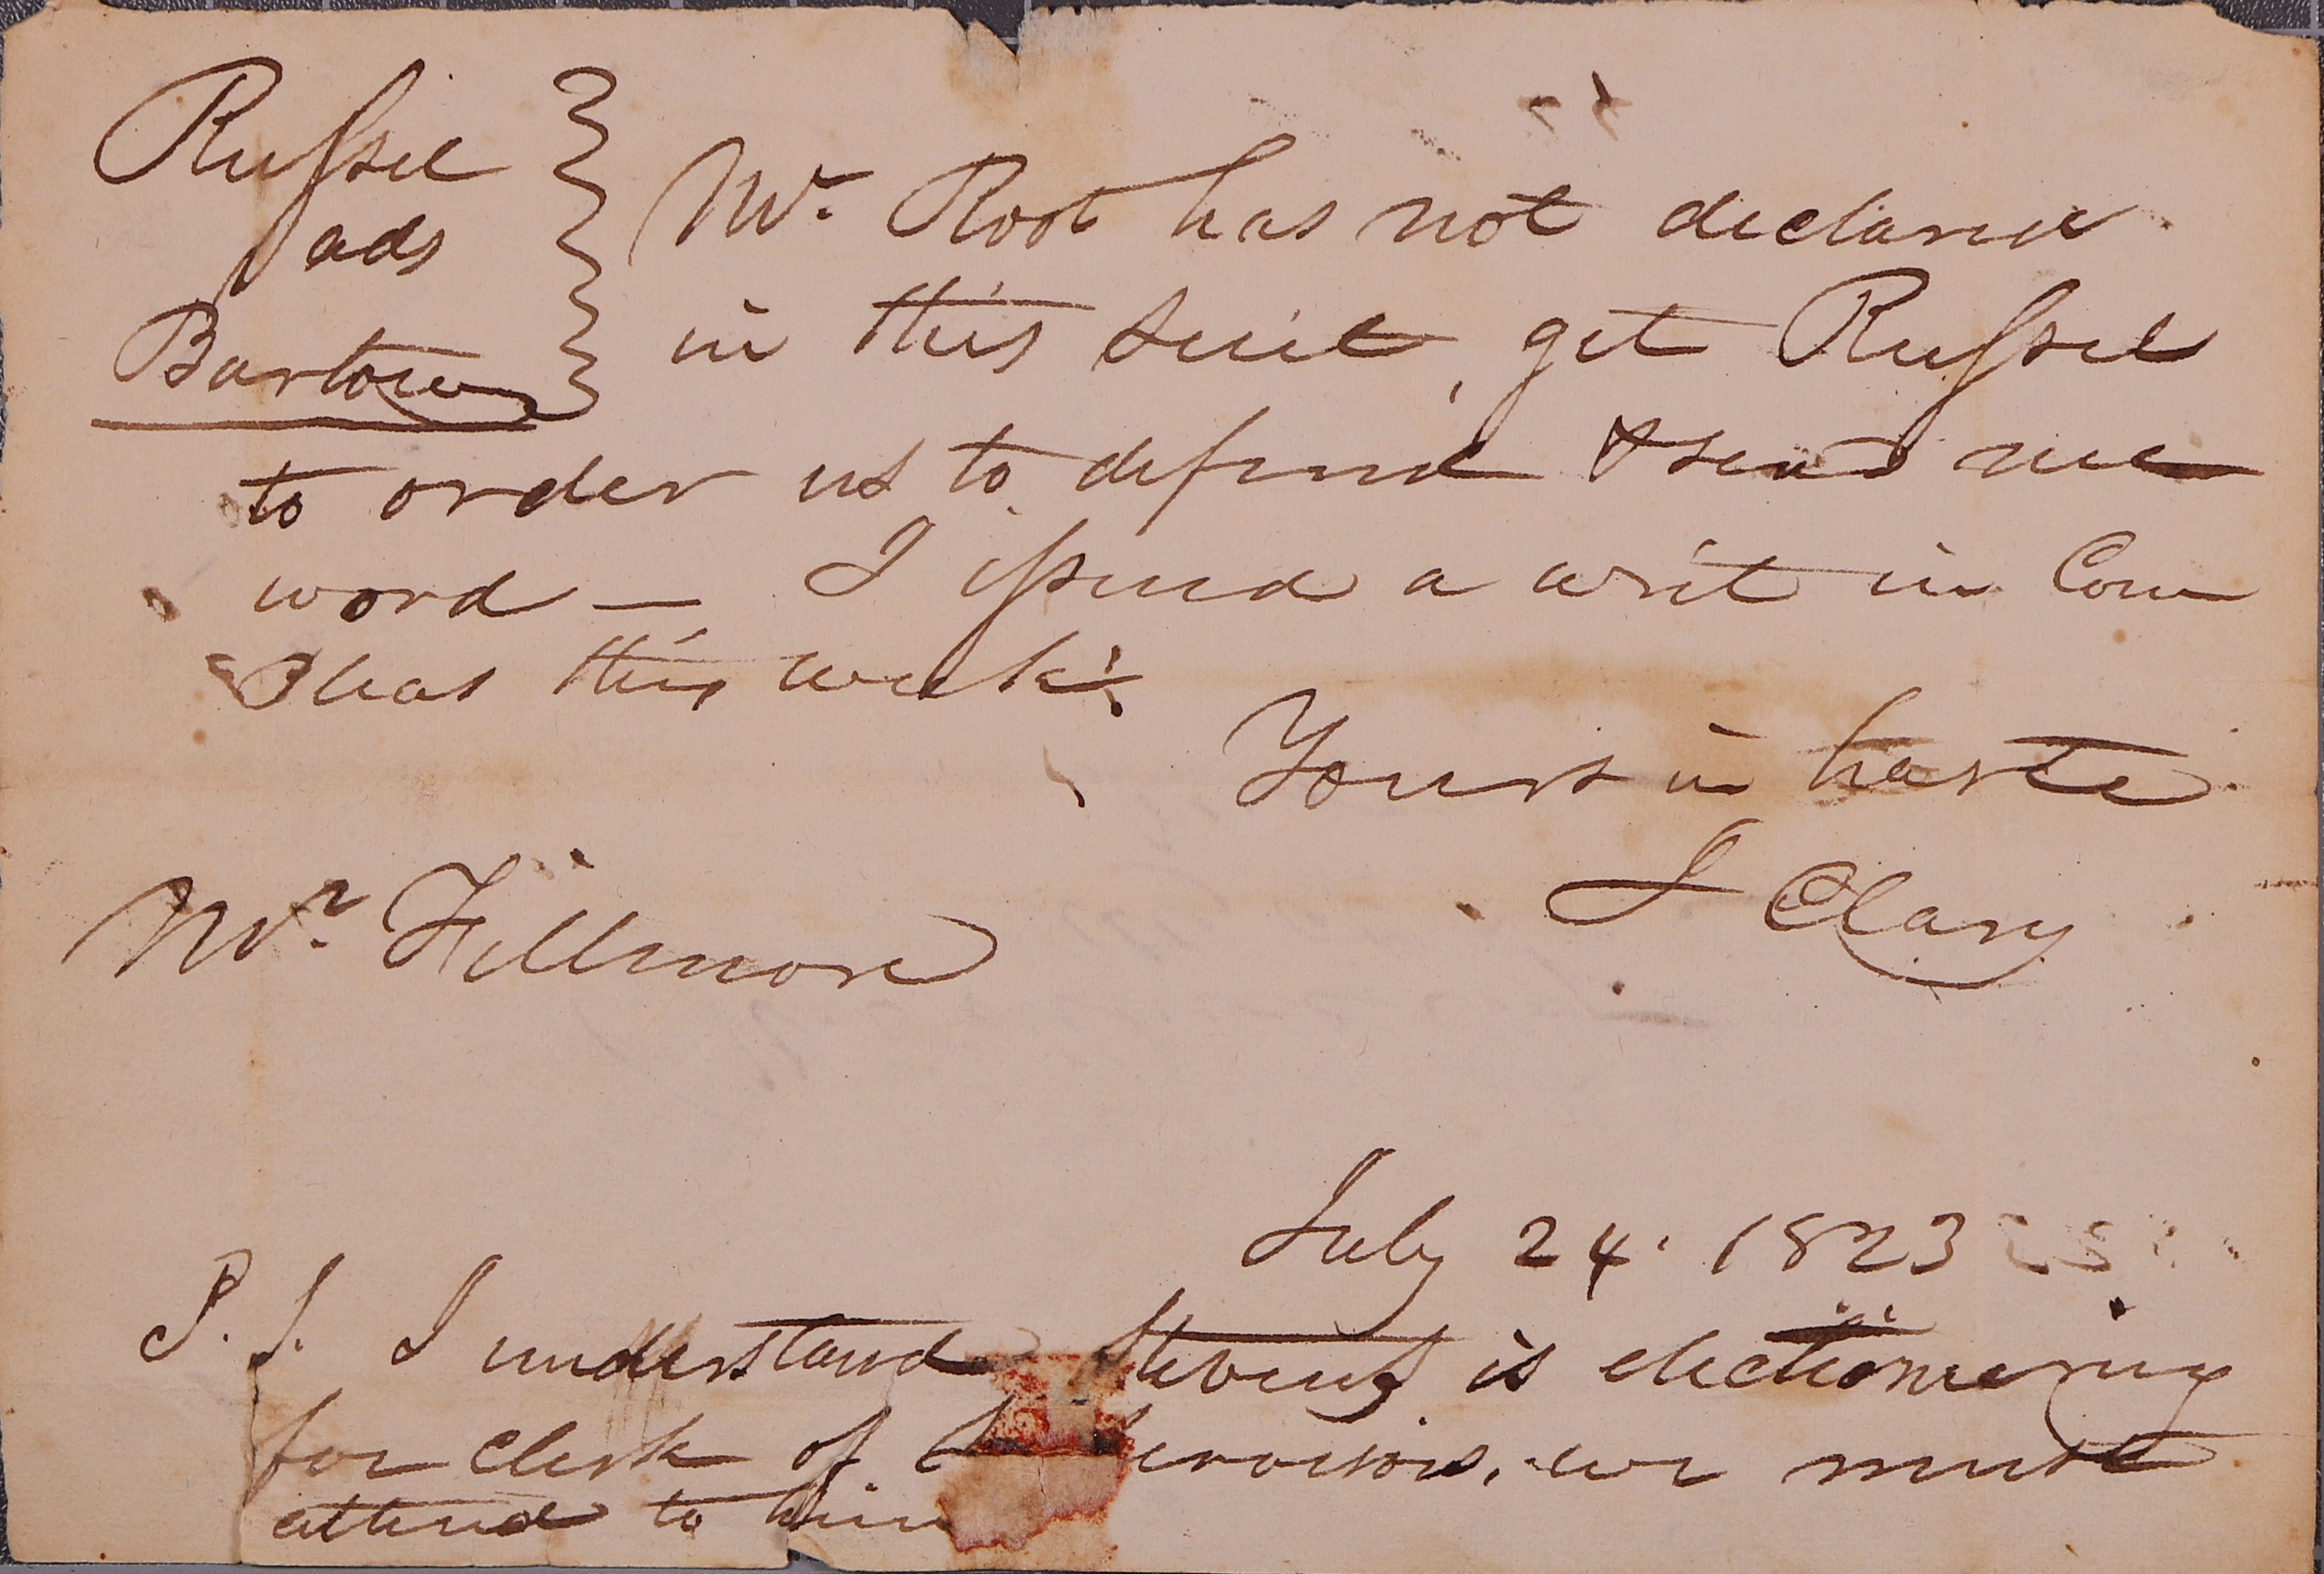 Russel
ads
Bartow
Mr. Root has not declared
in this suit, get Russel
to order us to defend & send me
word — I issued a writ in Com
Pleas this week.
Yours in haste
J Clary
Mr. Fillmore
July 24. 1823
P. S. I understand Stevens is electioneering
for clerk of we must
attend to him